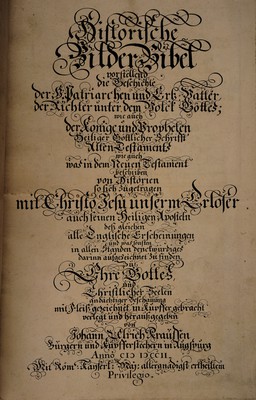 Historische
Bilder Bibel
vorstellend
die Geschichte
der H. Patriarchen und Ertz-Vätter
der Richter unter dem Volck Gottes;
wie auch
der Könige und Propheten
Heiliger Göttlicher Schrifft
Alten Testaments
wie auch
was in dem Neuen Testament
beschriben
von Historien
so sich zugetragen
mit Christo Jesu unserm Erlöser
auch seinen Heiligen Aposteln
deß gleichen
alle Englische Erscheinungen
und was sonsten
in allen Ständen denckwürdiges
darinn aufgezeichnet zu finden
zu
Ehre Gottes
und
Christlicher Seelen
andächtiger Beschauung
mit Fleiß gezeichnet in Kupffer gebracht
verlegt und herausgegeben
von
Johann Ulrich Kraussen
Burgern und Kupfferstechern in Augspurg
Anno
Mit Röm: Kayserl: May: allergnädigst ertheiltem
Privilegio.